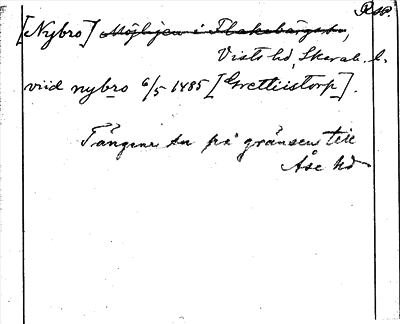 Rsp.
[Nybro] Möjligen i Flakebergs sn,
Viste hd, Skarab. l.
viid nybro 6/5 1485 [Grettiistorp].
Tängene sn på gränsen till
Åse hd